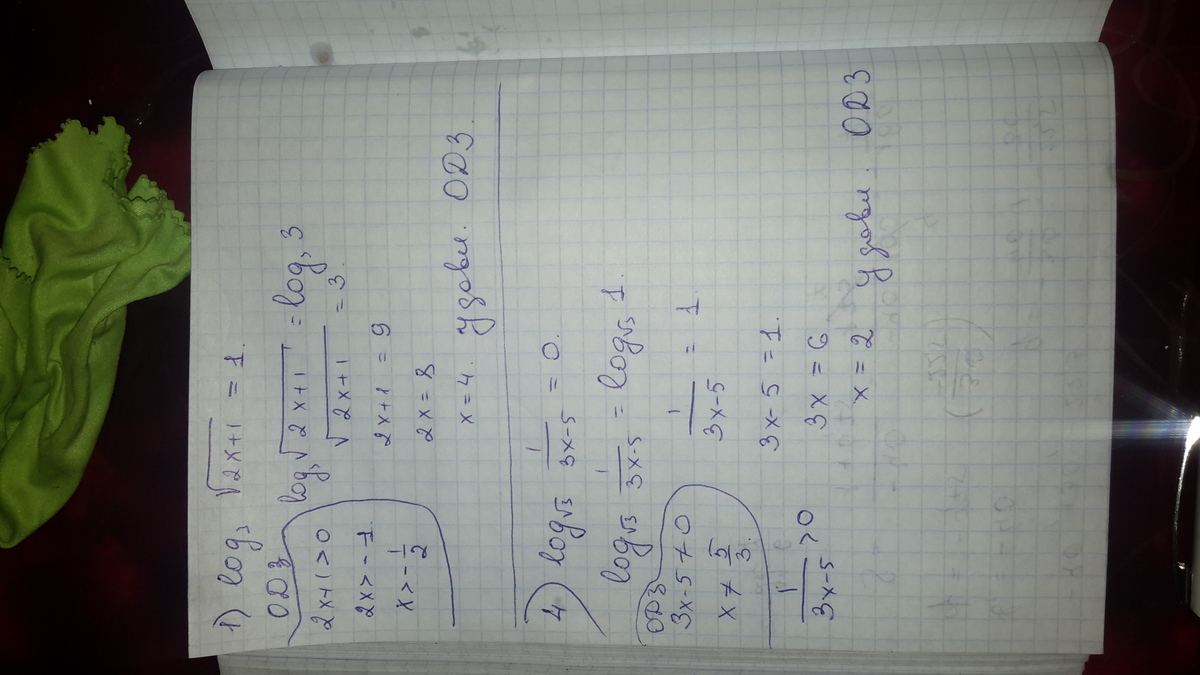 1) log₃ √2x+1 = 1.
ОДЗ
2x+1>0
2x>-1
x>-1/2
log₃ √2x+1 = log₃ 3
√2x+1 = 3.
2x+1 = 9
2x = 8
x = 4. удовл. ОДЗ.
4) log√3 1/3x-5 = 0.
log√3 1/3x-5 = log√3 1.
ОДЗ
3x-5≠0
x≠5/3.
1/3x-5 = 1
3x-5 = 1.
1/3x-5 >0
3x = 6
x = 2 удовл. ОДЗ